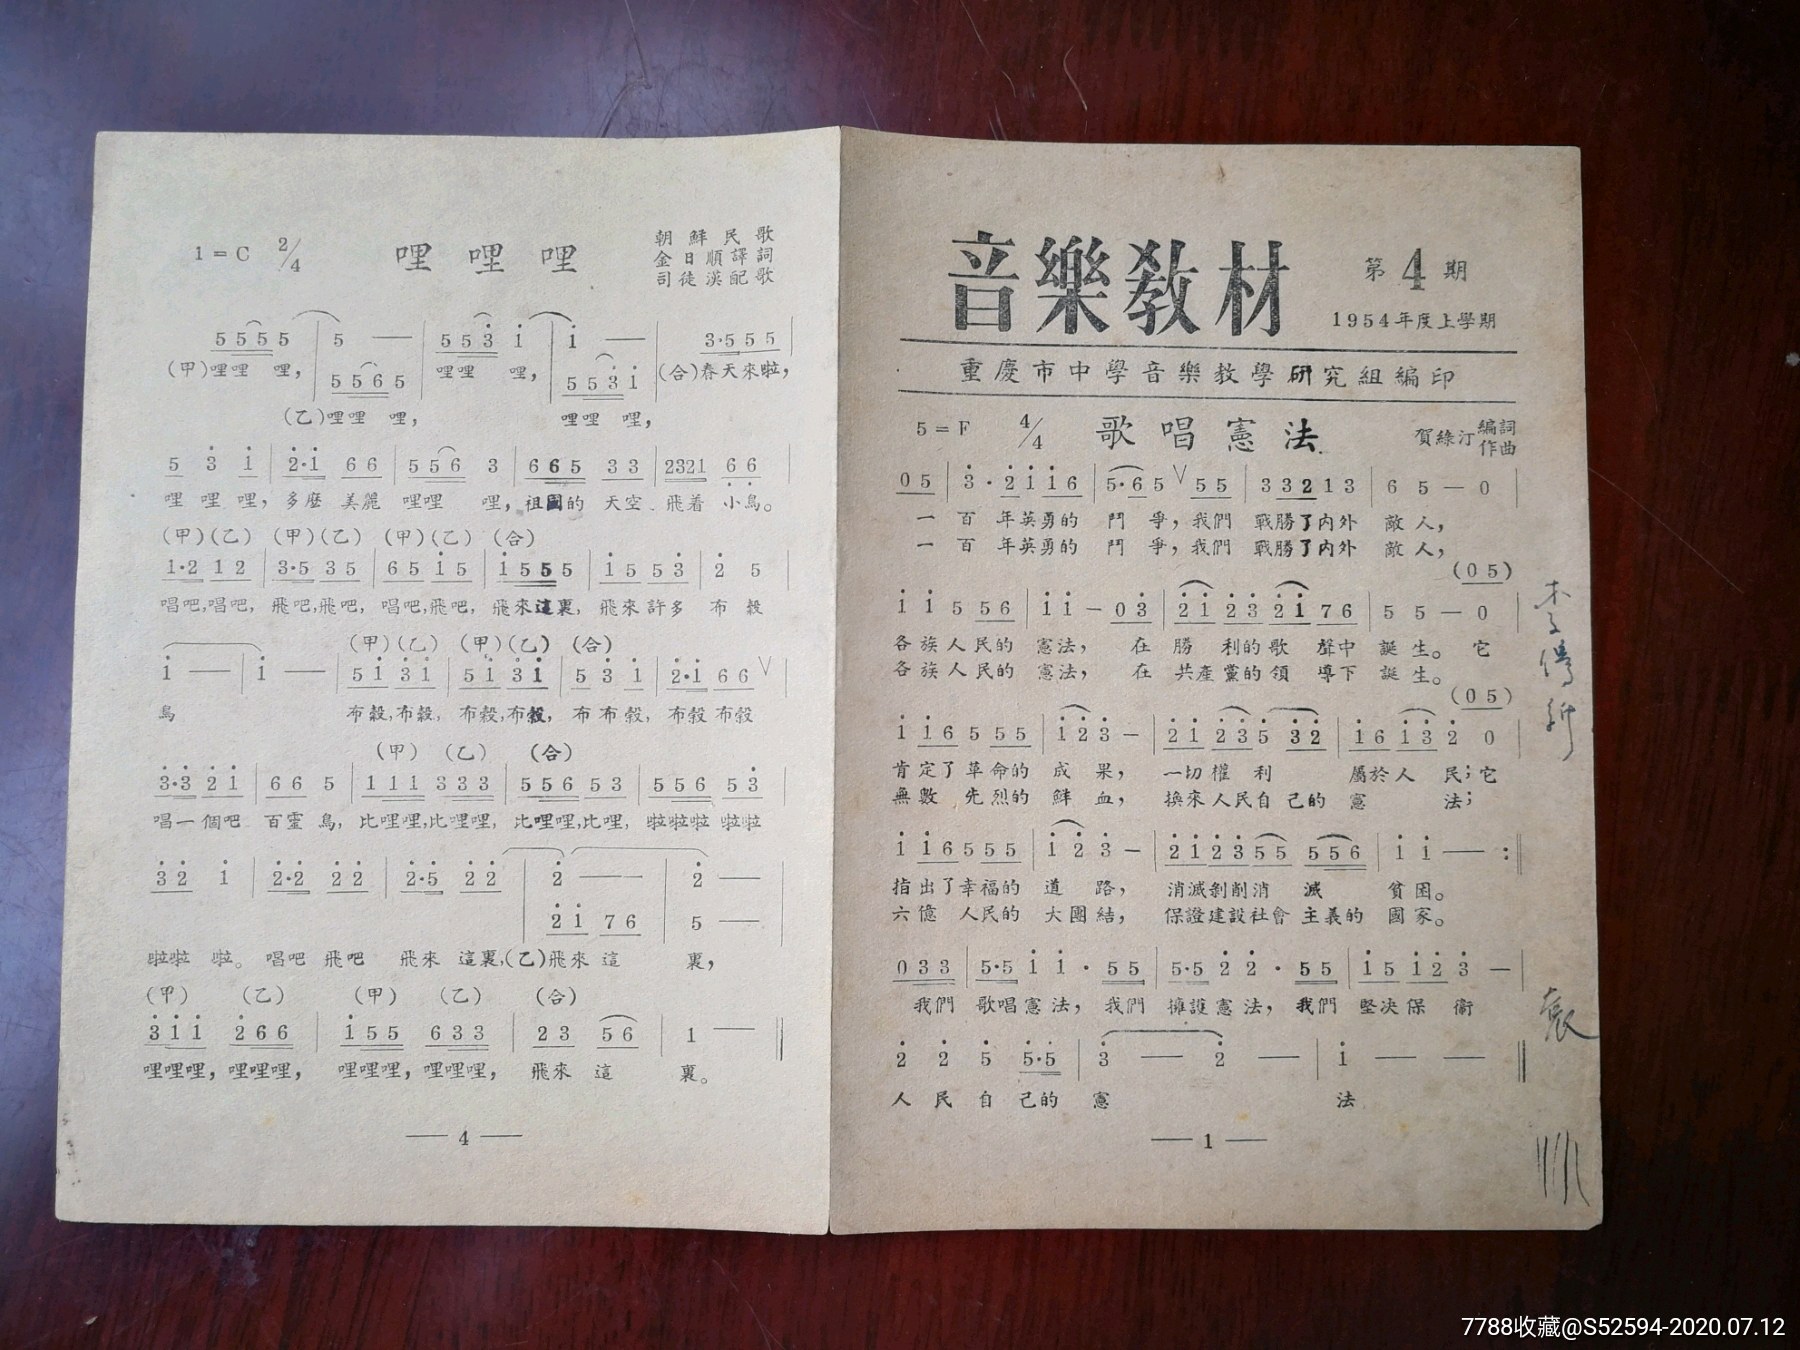 1=C 2/4 哩哩哩 朝鮮民歌
金日順譯詞
司徒漢配歌
5 5 5 5 | 5 — | 5 5 3 1 | 1 — | 3·5 5 5 |
(甲)哩哩 哩, 哩哩 哩, (合)春天來啦,
5 5 6 5 5 5 3 1
(乙)哩哩 哩, 哩哩 哩,
5 3 1 | 2·1 6 6 | 5 5 6 3 | 6 6 5 3 3 | 2321 6 6 |
哩 哩 哩, 多麼 美麗 哩哩 哩, 祖國的 天空 飛着 小鳥。
(甲)(乙) (甲)(乙) (甲)(乙) (合)
1·2 1 2 | 3·5 3 5 | 6 5 1 5 | 1 5 5 5 | 1 5 5 3 | 2 5
唱吧,唱吧, 飛吧,飛吧, 唱吧,飛吧, 飛來這裏, 飛來許多 布 穀
(甲)(乙) (甲)(乙) (合)
1 — | 1 — | 5 1 3 1 | 5 1 3 1 | 5 3 1 | 2·1 6 6 V |
鳥 布穀,布穀, 布穀,布穀, 布 布 穀, 布穀 布穀
(甲) (乙) (合)
3·3 2 1 | 6 6 5 | 1 1 1 3 3 3 | 5 5 6 5 3 | 5 5 6 5 3 |
唱一個吧 百靈 鳥, 比哩哩,比哩哩, 比哩哩,比哩, 啦啦啦 啦啦
3 2 1 | 2·2 2 2 | 2·5 2 2 | 2 — — | 2 — |
2 1 7 6 | 5 —
啦啦 啦。 唱吧 飛吧 飛來 這裏,(乙)飛來 這 裏,
(甲) (乙) (甲) (乙) (合)
3 1 1 2 6 6 | 1 5 5 6 3 3 | 2 3 5 6 | 1 — ‖
哩哩哩, 哩哩哩, 哩哩哩, 哩哩哩, 飛來 這 裏。
— 4 —
音樂教材 第4期
1954年度上學期
重慶市中學音樂教學研究組編印
5=F 4/4 歌唱憲法 賀綠汀編詞作曲
0 5 | 3 · 2 1 1 6 | 5·6 5 V 5 5 | 3 3 2 1 3 | 6 5 — 0 |
一 百 年英勇的 鬥 爭, 我們 戰勝了內外 敵 人,
一 百 年英勇的 鬥 爭, 我們 戰勝了內外 敵 人,
(0 5)
1 1 5 5 6 | 1 1 — 0 3 | 2 1 2 3 2 1 7 6 | 5 5 — 0 |
各 族 人 民的 憲法, 在 勝 利的歌 聲中 誕 生。 它
各 族 人 民的 憲法, 在 共產黨的領 導下 誕 生。
(0 5)
1 1 6 5 5 5 | 1 2 3 — | 2 1 2 3 5 3 2 | 1 6 1 3 2 0 |
肯定了 革命的 成 果, 一切權 利 屬於人 民;它
無數 先烈的 鮮 血, 換來人民自己的 憲 法;
1 1 6 5 5 5 | 1 2 3 — | 2 1 2 3 5 5 5 5 6 | 1 1 — :‖
指出了幸福的 道 路, 消滅剝削消 滅 貧困。
六億 人民的 大團結, 保證建設社會 主義的 國家。
0 3 3 | 5·5 1 1 · 5 5 | 5·5 2 2 · 5 5 | 1 5 1 2 3 — |
我們 歌唱憲法, 我們 擁護憲法, 我們 堅決保 衛
2 2 5 5·5 | 3 — 2 — | 1 — — ‖
人 民 自 己的 憲 法
— 1 —
袁
7788收藏@S52594-2020.07.12